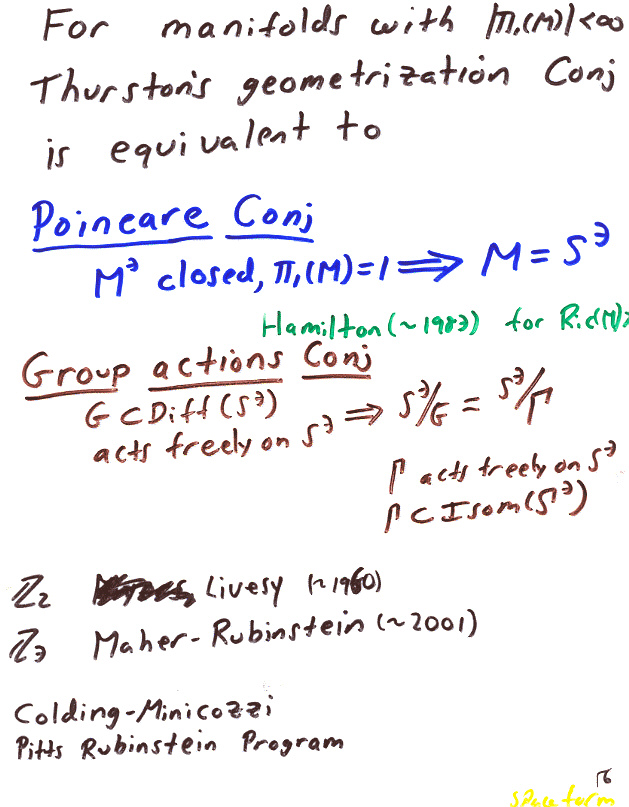 For manifolds with |π₁(M)|<∞
Thurston's geometrization Conj
is equivalent to
Poincare Conj
M³ closed, π₁(M)=1 ⟹ M = S³
Hamilton (~1983) for Ric(M)>
Group actions Conj
G ⊂ Diff(S³)
acts freely on S³ ⟹ S³/G = S³/Γ
Γ acts freely on S³
Γ ⊂ Isom(S³)
ℤ₂ Livesy (~1960)
ℤ₃ Maher-Rubinstein (~2001)
Colding-Minicozzi
Pitts Rubinstein Program
16
space form